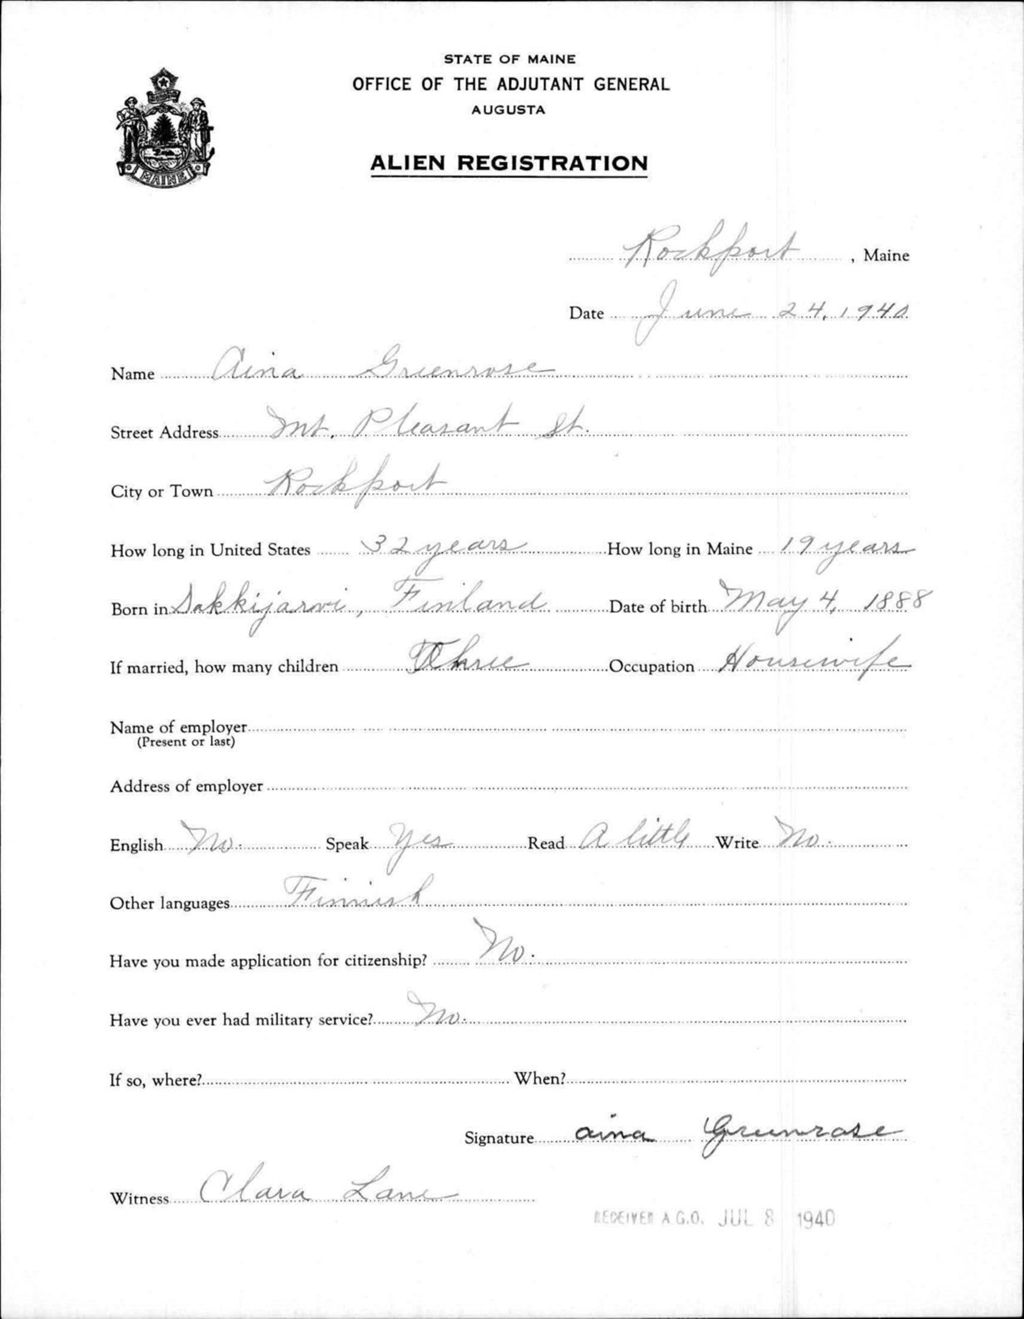 STATE OF MAINE
OFFICE OF THE ADJUTANT GENERAL
AUGUSTA
ALIEN REGISTRATION
MAINE
Rockport, Maine
Date June 24, 1940
Name Aina Greenrose
Street Address Mt. Pleasant St.
City or Town Rockport
How long in United States 32 years How long in Maine 19 years
Born in Sakkijarvi, Finland Date of birth May 4, 1888
If married, how many children Three Occupation Housewife
Name of employer
(Present or last)
Address of employer
English No. Speak Yes Read A little Write No.
Other languages Finnish
Have you made application for citizenship? No.
Have you ever had military service? No.
If so, where? When?
Signature aina Greenrose
Witness Clara Lane
RECEIVED A.G.O. JUL 8 1940